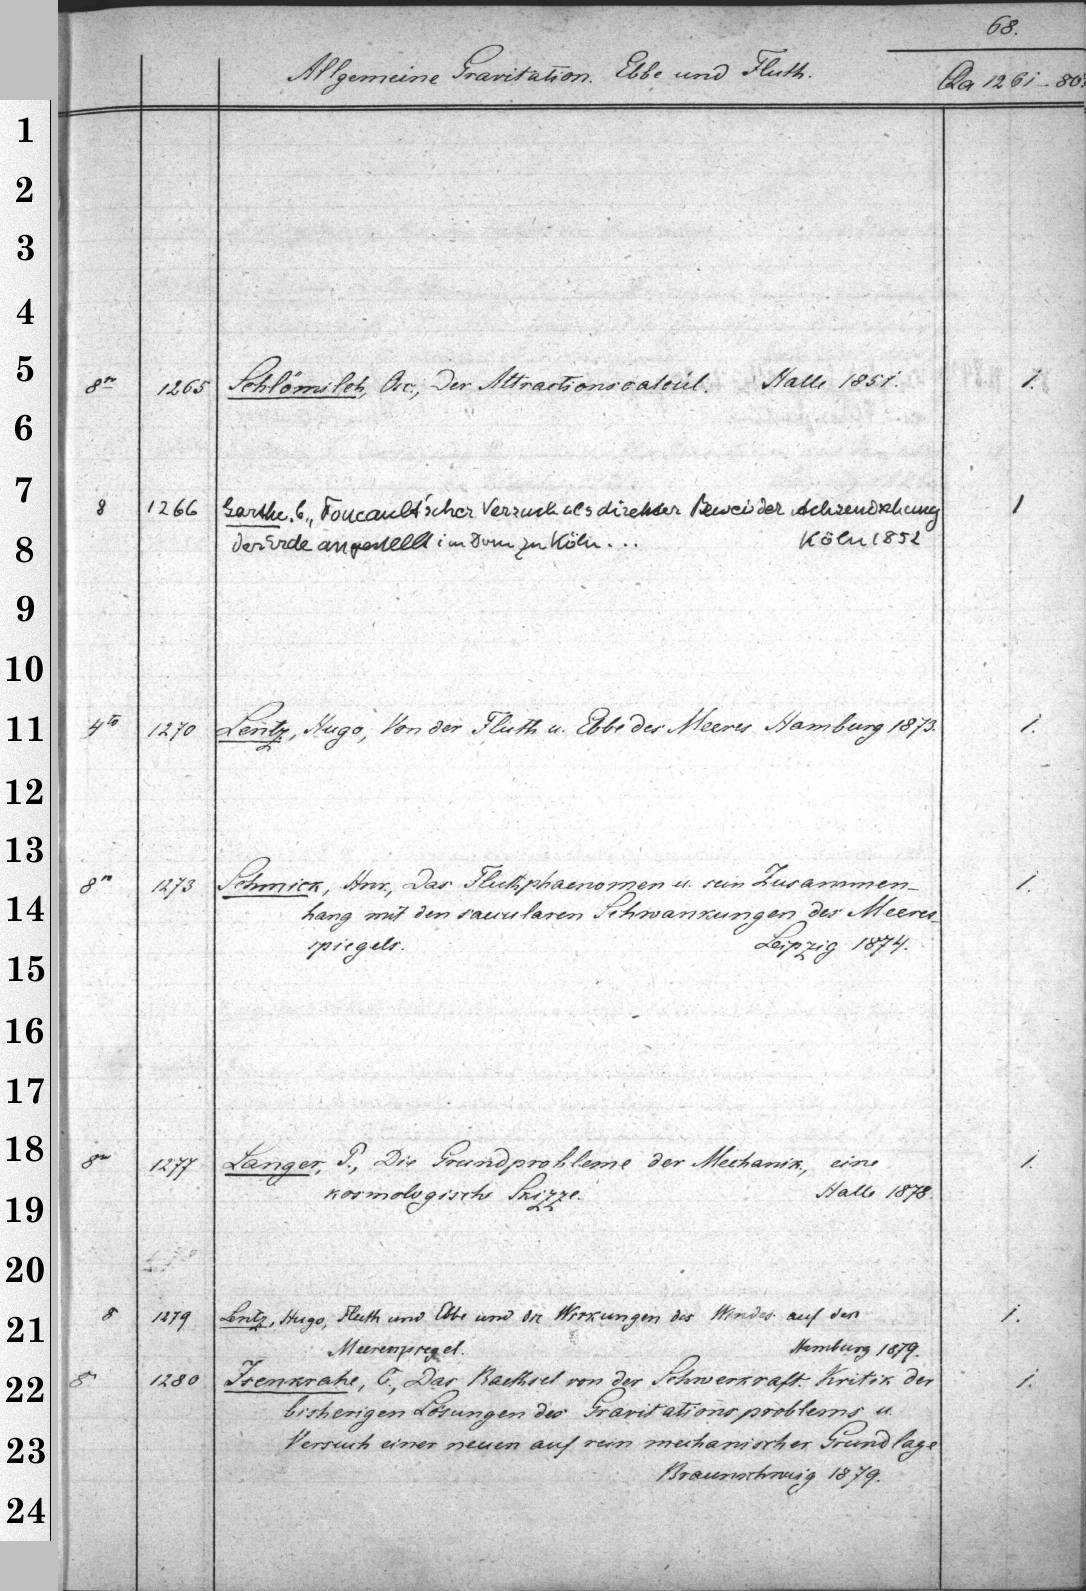 68.
Allgemeine Gravitation. Ebbe und Fluth.
Qa 1261-80
1
2
3
4
5
8º 1265 Schlömilch, Osc., Der Attractionscalcül. Halle 1851. 1.
6
7
8 1266 Garthe, C., Foucault'scher Versuch als direkter Beweis der Achsendrehung 1
8
der Erde angestellt im Dom zu Köln ... Köln 1852
9
10
11
4to 1270 Lentz, Hugo, Von der Fluth u. Ebbe des Meeres Hamburg 1873. 1.
12
13
8º 1273 Schmick, Hnr., Das Fluthphaenomen u. sein Zusammen- 1.
14
hang mit den saecularen Schwankungen des Meeres-
spiegels. Leipzig 1874.
15
16
17
18
8º 1277 Langer, P., Die Grundprobleme der Mechanik, eine 1.
kosmologische Skizze. Halle 1878.
19
20
21
8 1279 Lentz, Hugo, Fluth und Ebbe und die Wirkungen des Windes auf den 1.
Meeresspiegel. Hamburg 1879.
22
8º 1280 Isenkrahe, C., Das Raethsel von der Schwerkraft. Kritik der 1.
bisherigen Lösungen des Gravitationsproblems u.
23
Versuch einer neuen auf rein mechanischer Grundlage
Braunschweig 1879.
24